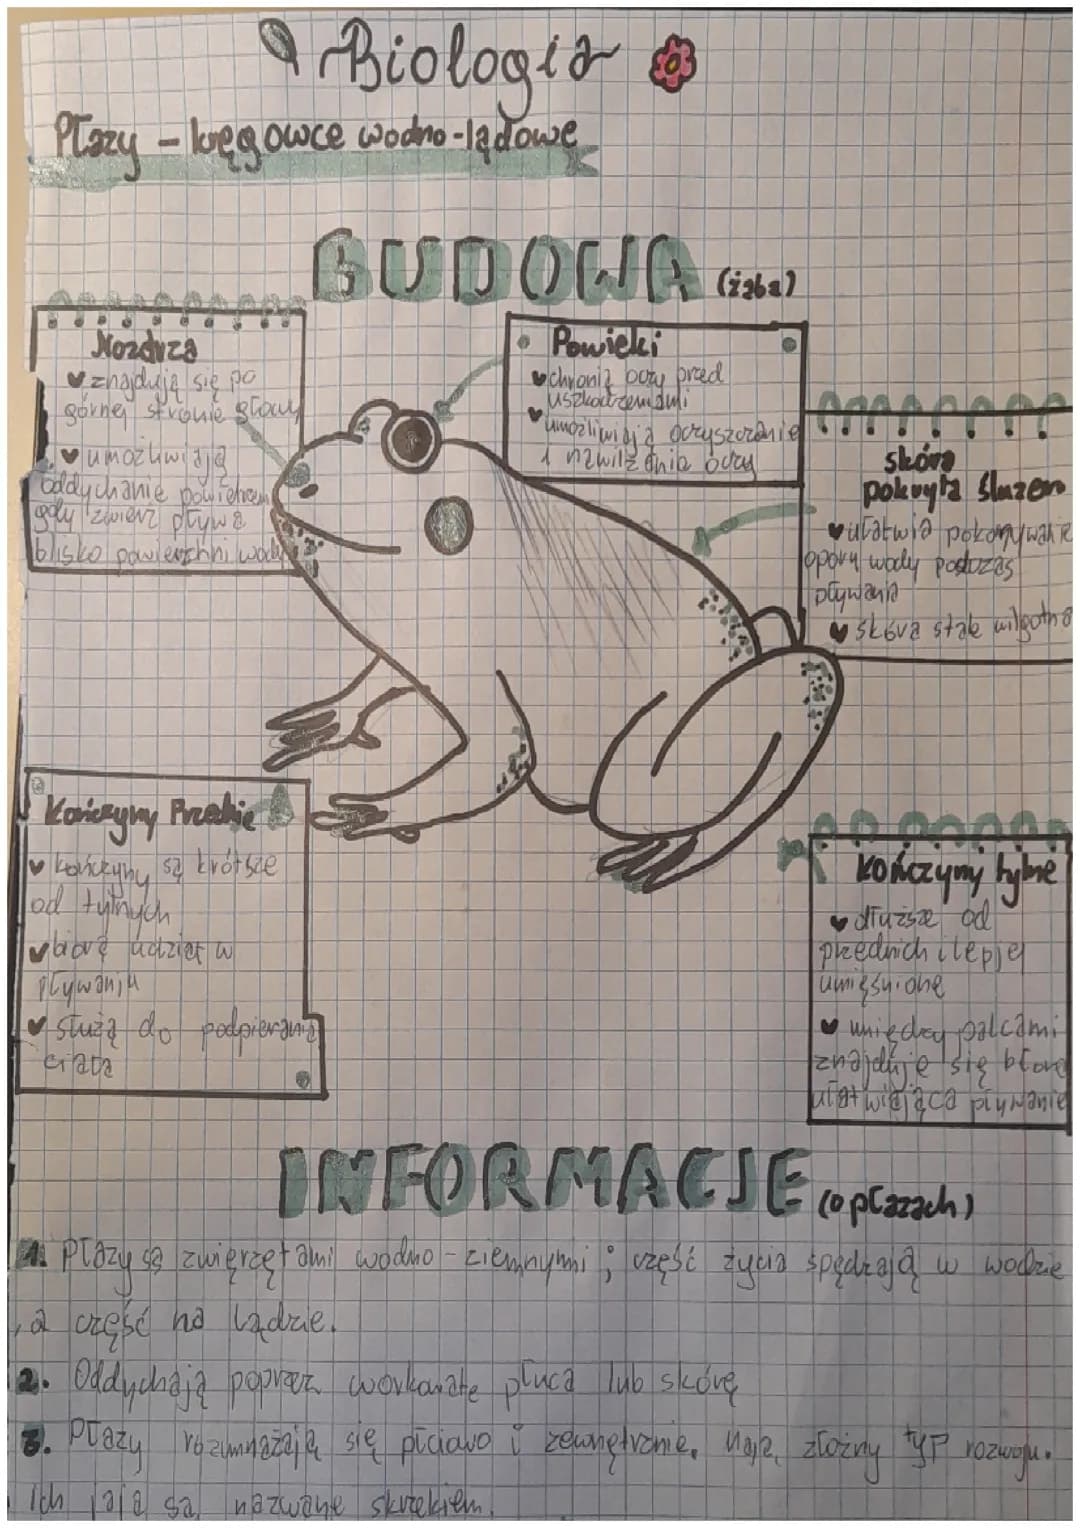 Biologia
Płazy - kręgowce wodno-lądowe
BUDOWA (żaba)
Nozdrza
znajdują się po
górnej stronie głowy
umożliwiają
oddychanie powietrzem
gdy zwierz pływa
blisko powierzchni wody
Powieki
chronią oczy przed
uszkodzeniami
umożliwiają oczyszczanie
i nawilżanie oczy
skóra
pokryta śluzem
ułatwia pokonywanie
oporu wody podczas
pływania
skóra stale wilgotna
Kończyny Przednie
kończyny są krótsze
od tylnych
biorą udział w
pływaniu
służą do podpierania
ciała
Kończyny tylne
dłuższe od
przednich i lepiej
umięśnione
między palcami
znajduje się błona
ułatwiająca pływanie
INFORMACJE (o płazach)
1. Płazy są zwierzętami wodno-ziemnymi; część życia spędzają w wodzie
, a część na lądzie.
2. Oddychają poprzez workowate płuca lub skórę
3. Płazy rozmnażają się płciowo i zewnętrznie. Mają złożny typ rozwoju.
Ich jaja są nazwane skrzekiem.